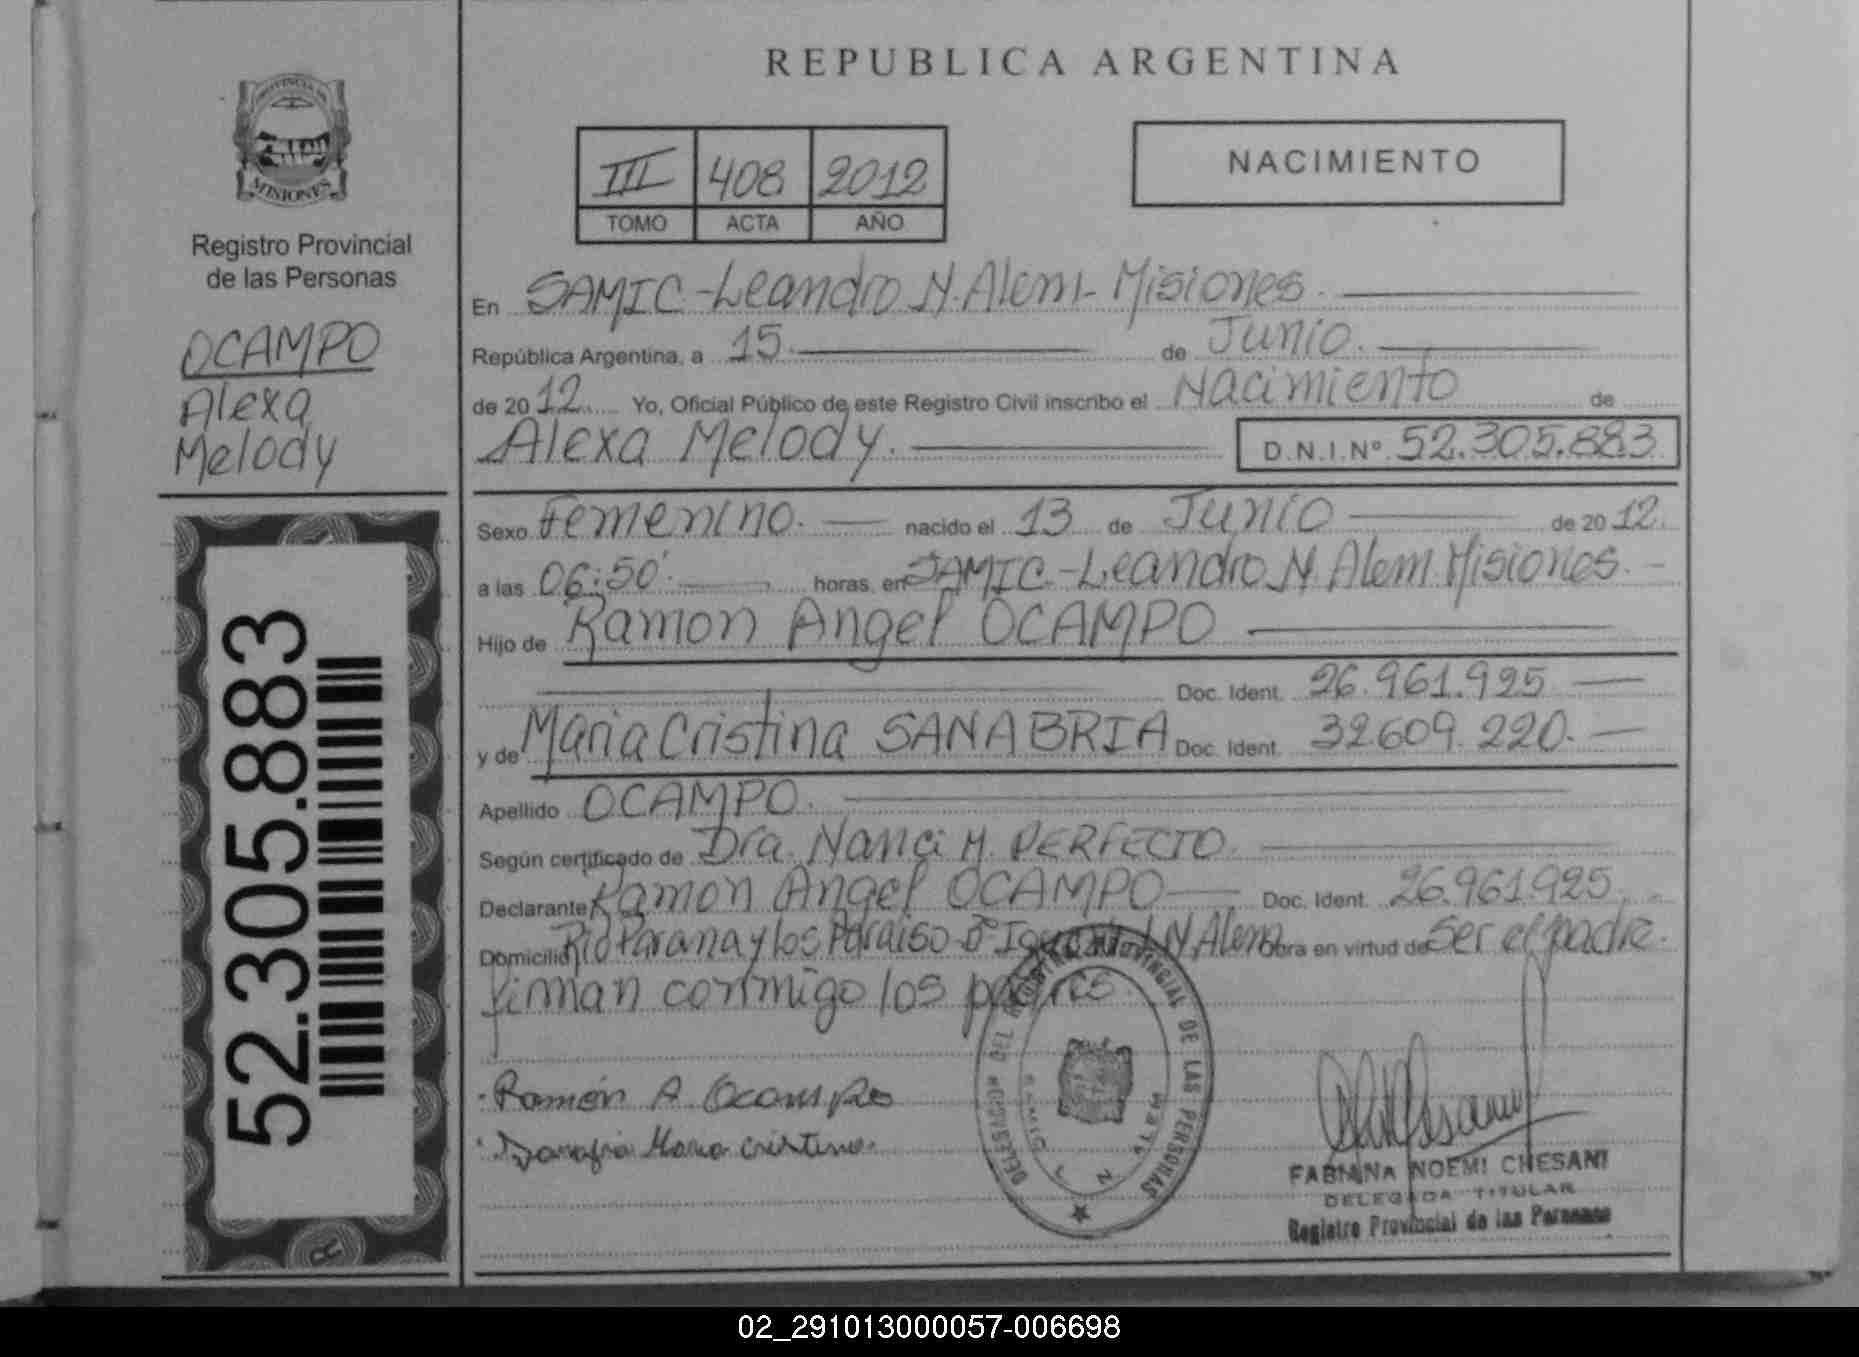 REPUBLICA ARGENTINA
PROVINCIA DE
MISIONES
Registro Provincial
de las Personas
OCAMPO
Alexa
Melody
52.305.883
III 408 2012
TOMO ACTA AÑO
NACIMIENTO
En SAMIC-Leandro N. Alem-Misiones.
República Argentina, a 15 de Junio.
de 2012 Yo, Oficial Público de este Registro Civil inscribo el Nacimiento de
Alexa Melody. D.N.I.Nº 52.305.883
Sexo Femenino. nacido el 13 de Junio de 2012.
a las 06:50' horas, en SAMIC-Leandro N Alem. Misiones.
Hijo de Ramon Angel OCAMPO
Doc. Ident. 26.961.925
y de Maria Cristina SANABRIA Doc. Ident. 32.609.220.
Apellido OCAMPO.
Según certificado de Dra. Nanci M. PERFECTO.
Declarante Ramon Angel OCAMPO Doc. Ident. 26.961.925
Domicilio Rio Parana y los Paraiso Bº L N Alem Obra en virtud de Ser el padre.
firman conmigo los padres.
Ramón A Ocampo
Maria Cristina
DELEGACION DEL REGISTRO PROVINCIAL DE LAS PERSONAS
SAMIC L N
FABIANA NOEMI CHESANI
DELEGADA TITULAR
Registro Provincial de las Personas
02_291013000057-006698